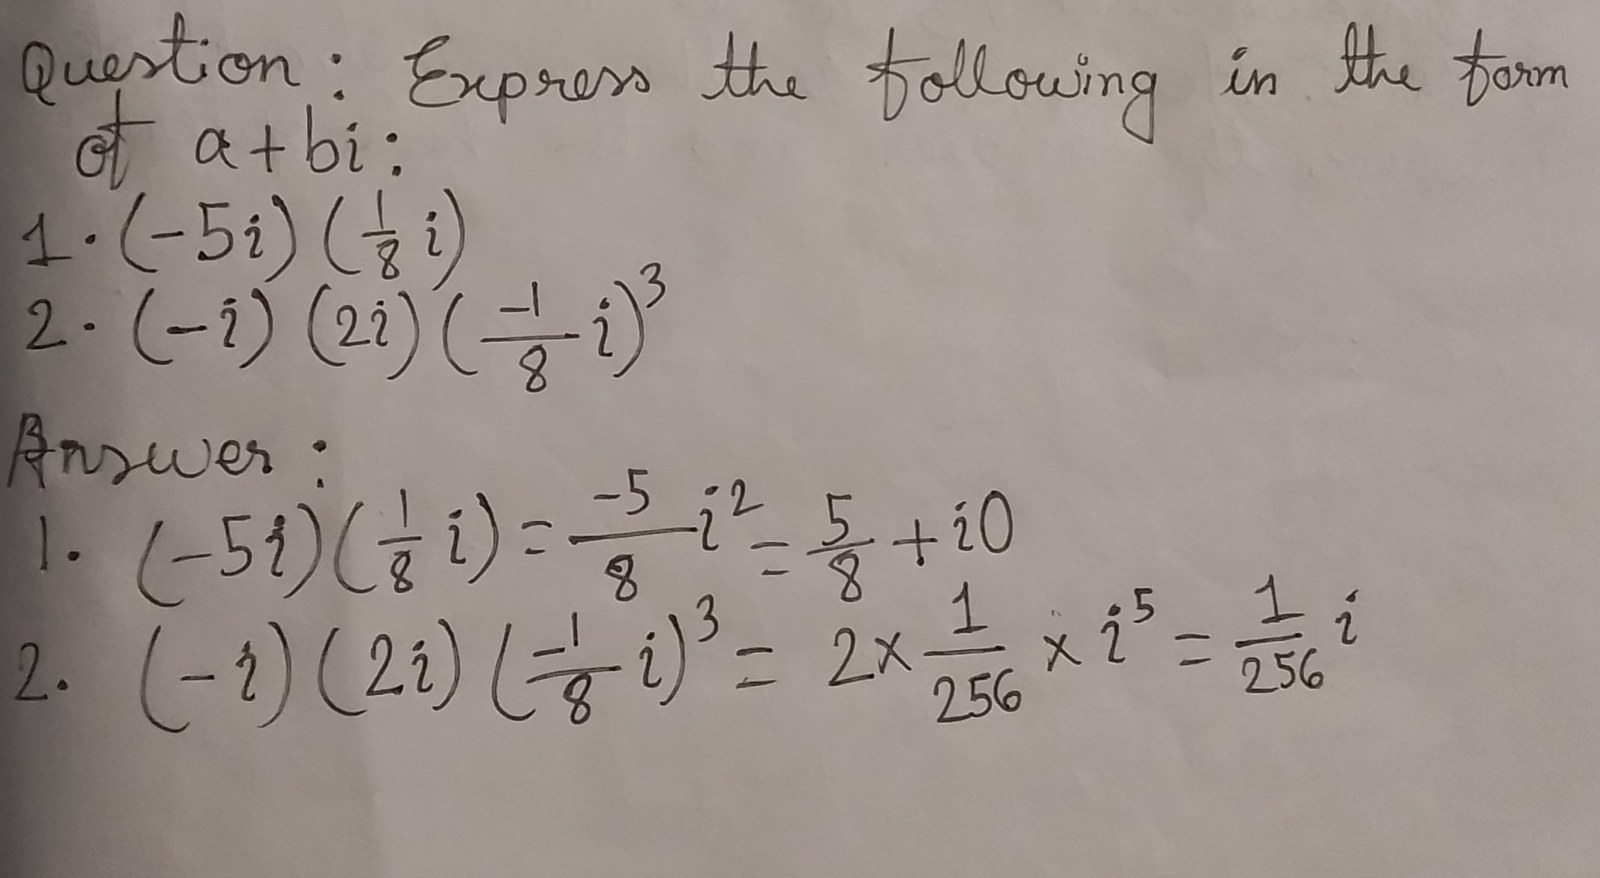 Question: Express the following in the form
of a+bi:
1. (-5i) (1/8 i)
2. (-i) (2i) (-1/8 i)³
Answer:
1. (-5i) (1/8 i) = -5/8 i² = 5/8 + i0
2. (-i) (2i) (-1/8 i)³ = 2 x 1/256 x i⁵ = 1/256 i